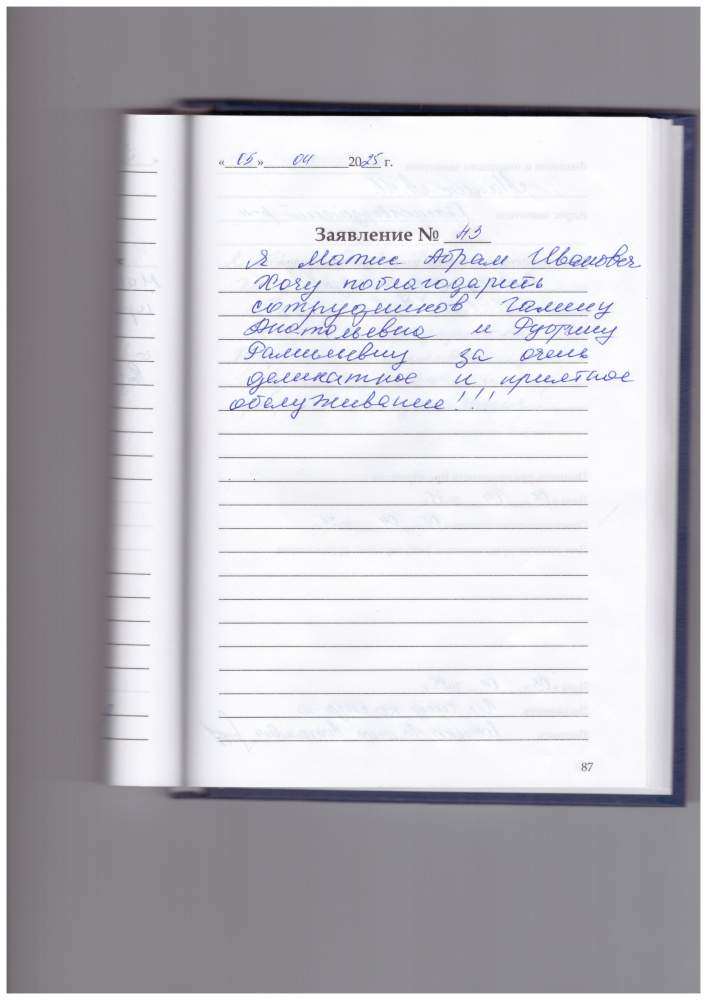 « 05 » 04 2025 г.
Заявление № 43
Я Матис Абрам Иванович
Хочу поблагодарить
сотрудников Галину
Анатольевна и
Рамильевну за очень
деликатное и приятное
обслуживание!!!
87